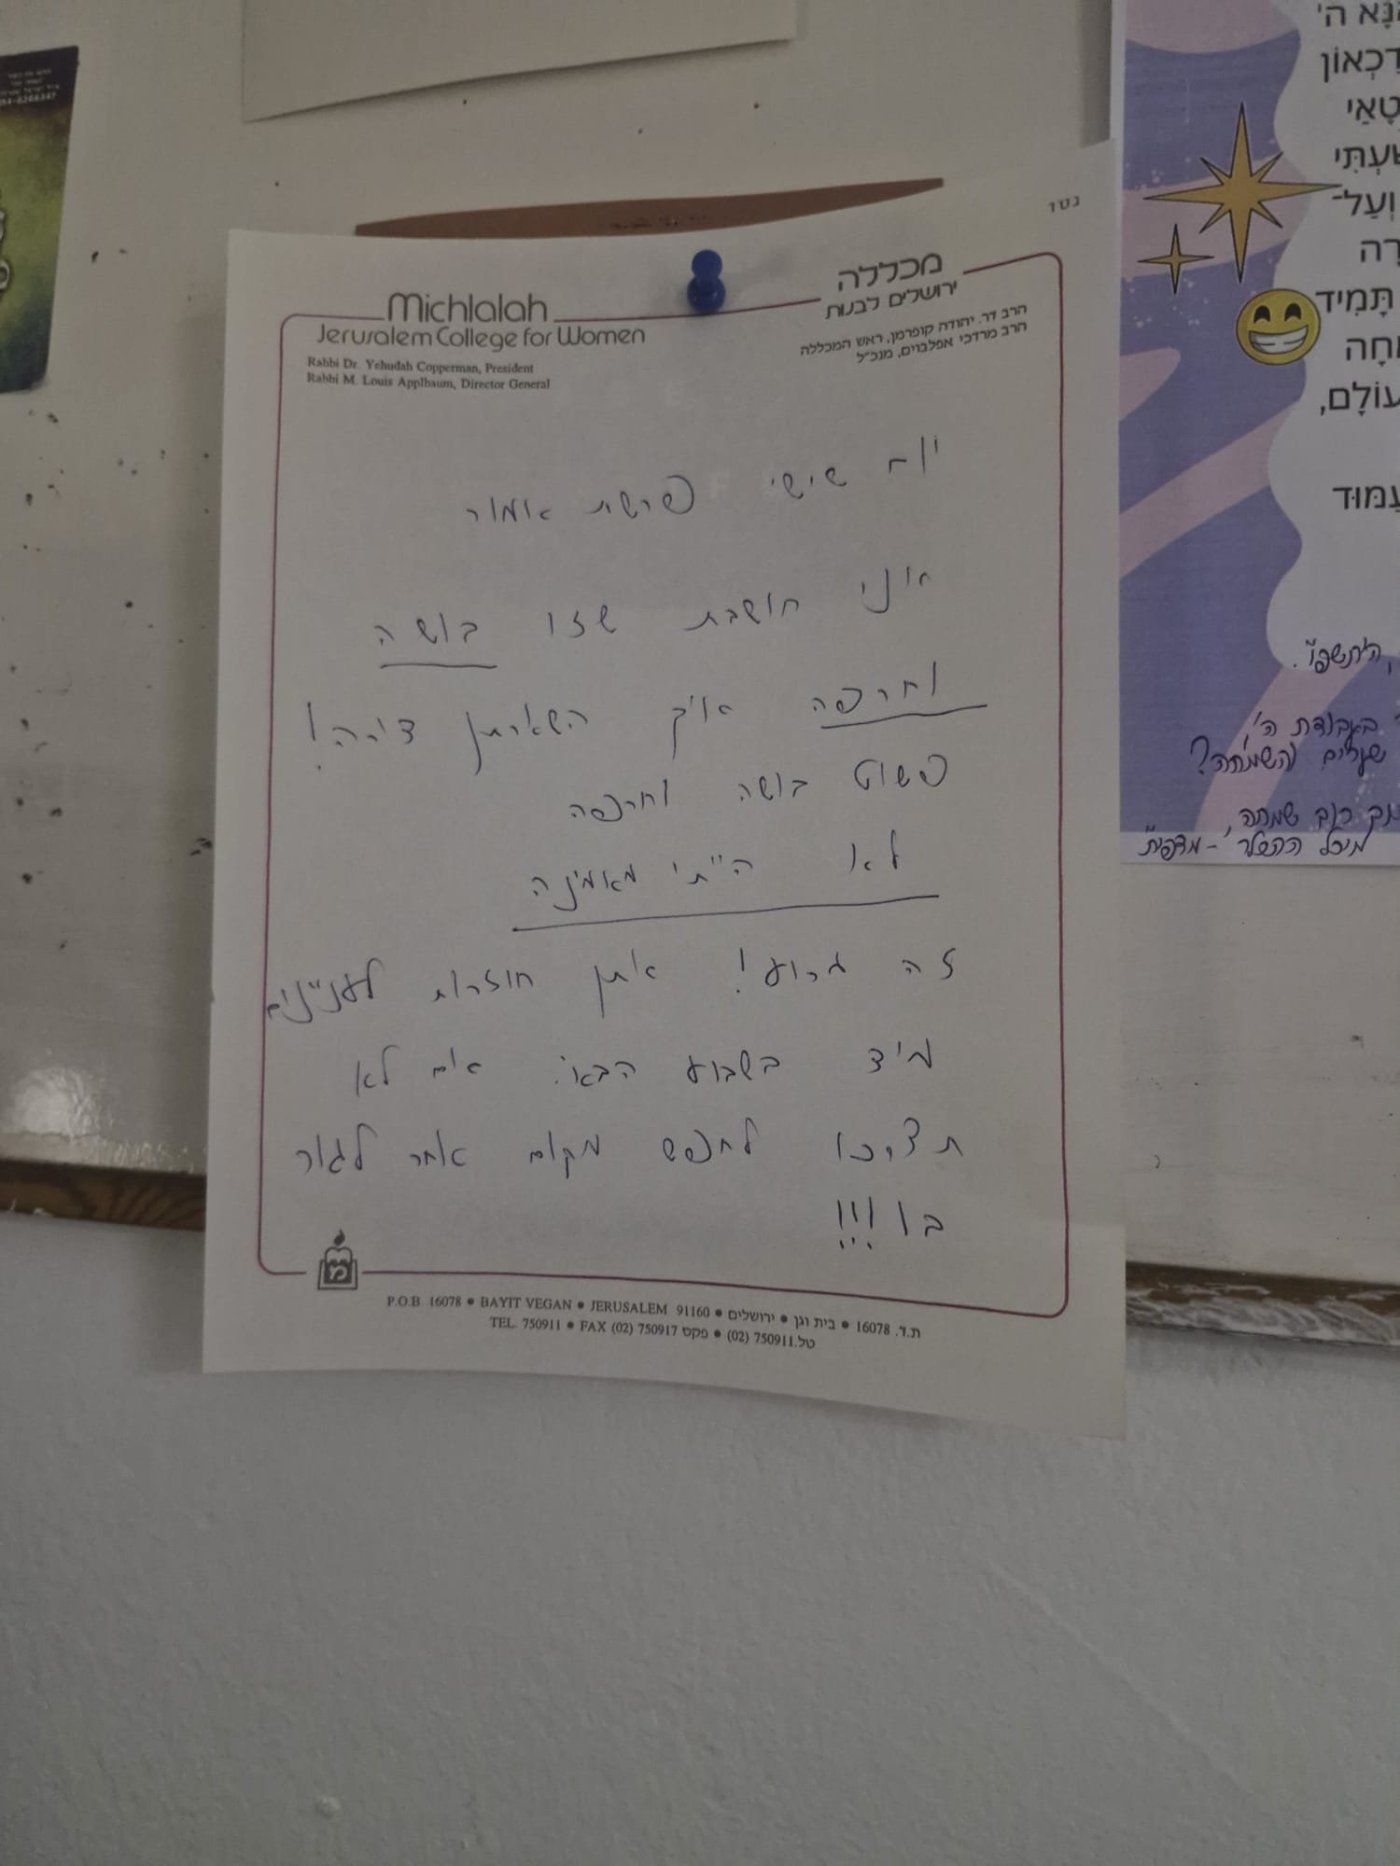 אָנָּא ה'
עַמּוּד
עוֹלָם,
תָּמִיד
וְעַל־
נטו
Michlalah
Jerusalem College for Women
Rabbi Dr. Yehudah Copperman, President
Rabbi M. Louis Applbaum, Director General
מכללה
ירושלים לבנות
הרב דר. יהודה קופרמן, ראש המכללה
הרב מרדכי אפלבוים, מנכ"ל
יום שישי פרשת אמור
אני חושבת שזו בושה
וחרפה איך השארתן דירה!
פשוט בושה וחרפה
לא הייתי מאמינה
זה גרוע! אתן חוזרות לעניינים
מיד בשבוע הבא. אם לא
תצרכו לחפש מקום אחר לגור
בו!!!
P.O.B. 16078 • BAYIT VEGAN • JERUSALEM 91160 • ת.ד. 16078 • בית וגן • ירושלים
TEL. 750911 • FAX (02) 750917 פקס • (02) 750911.טל
ה'תשפ"ו.
בעבודת ה',
רוב שמחה,